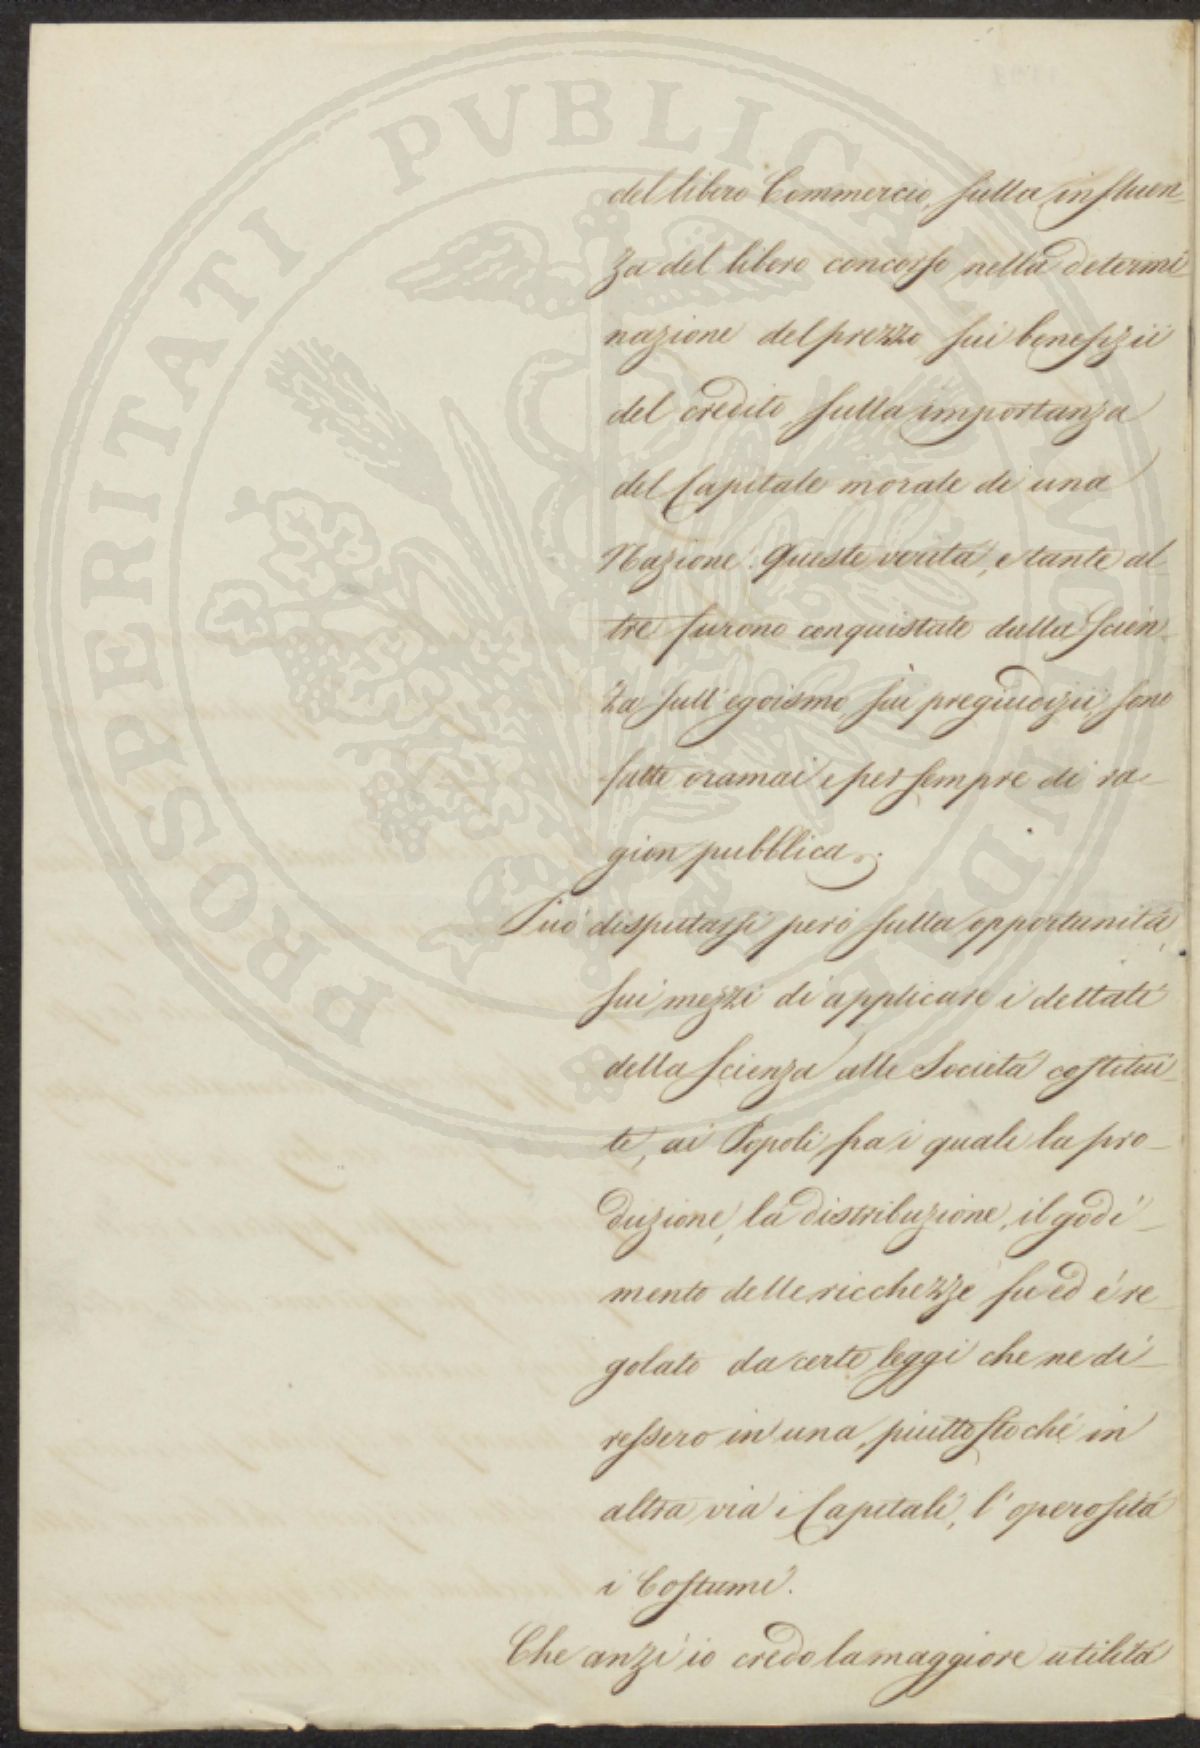 PROSPERITATI PVBLICAE AVGENDAE
del libero Commercio, sulla influen-
za del libero concorso nella determi
nazione del prezzo sui benefizii
del credito, sulla importanza
del Capitale morale di una
Nazione. Queste verità, e tante al-
tre furono conquistate dalla scien-
za sull'egoismo, sui pregiudizii, sono
fatte oramai e per sempre di ra-
gion pubblica.
Può disputarsi però sulla opportunità,
sui mezzi di applicare i dettati
della scienza alle Società costitui-
te, ai Popoli fra i quali la pro-
duzione, la distribuzione, il godi-
mento delle ricchezze fu ed è re-
golato da certe leggi che ne di-
ressero in una, piuttostochè in
altra via i Capitali, l'operosità
i Costumi.
Che anzi io credo la maggiore utilità